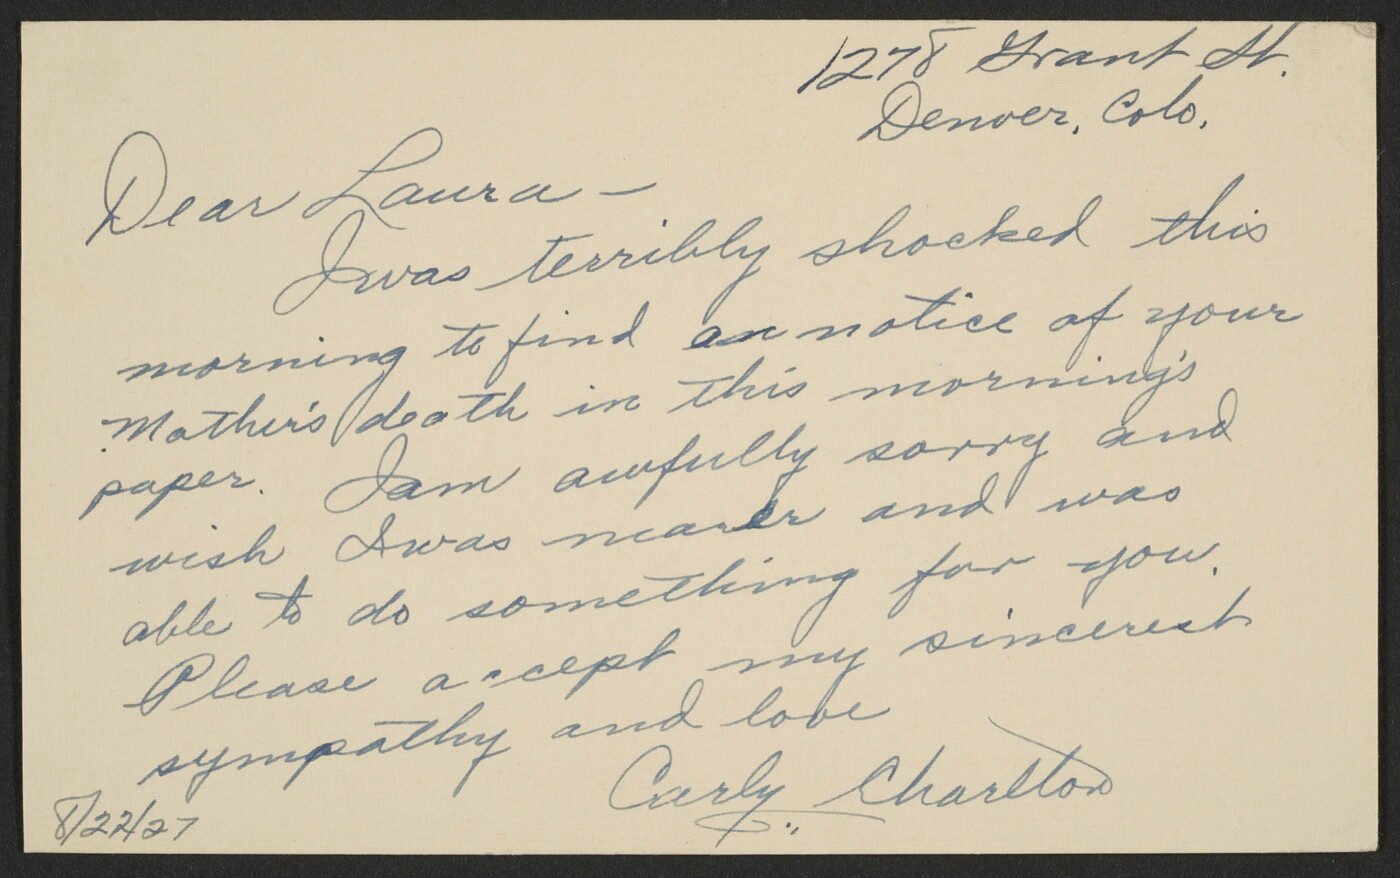 1278 Grant St.
Denver, Colo.
Dear Laura —
I was terribly shocked this
morning to find an notice of your
Mother's death in this morning's
paper. I am awfully sorry and
wish I was nearer and was
able to do something for you.
Please accept my sincerest
sympathy and love
Carly Charlton
8/22/27